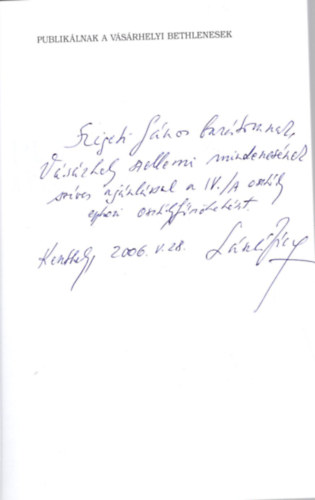 PUBLIKÁLNAK A VÁSÁRHELYI BETHLENESEK
Szigeti János barátomnak,
Vásárhely szellemi mindenesének
szíves ajánlással a IV./A osztály
egykori osztályfőnökeként.
2006. V. 28.